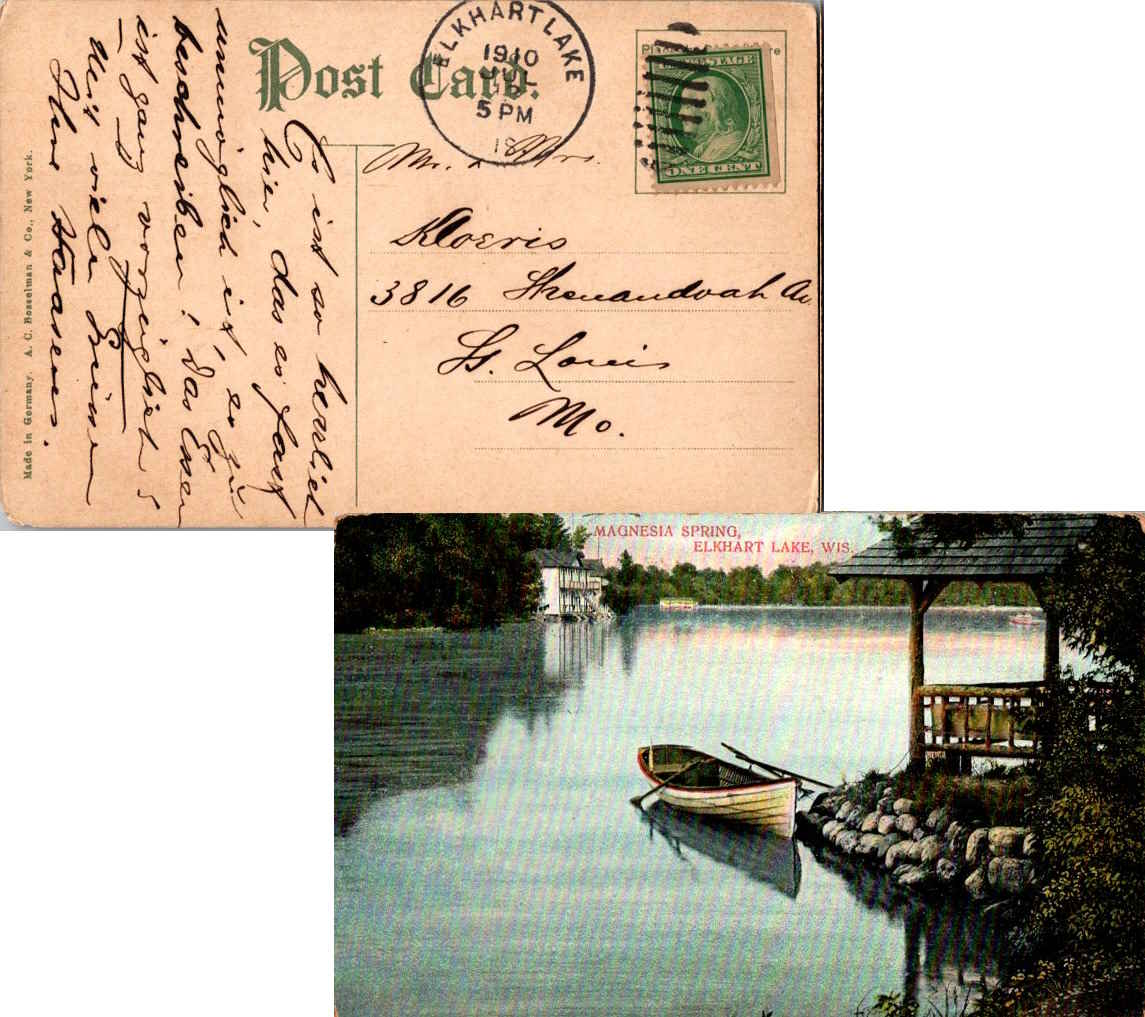 Post Card.
ELKHART LAKE
1910
JUL
5 PM
U.S. POSTAGE
ONE CENT
Es ist so herrlich
hier, das es fast
unmöglich ist, es zu
beschreiben! Das Essen
ist ganz vorzüglich!
Mit viele Grüssen
Ihre
Mr. + Mrs.
Kloeris
3816 Shenandoah Av
St. Louis
Mo.
Made in Germany. A. C. Bosselman & Co., New York.
MAGNESIA SPRING,
ELKHART LAKE, WIS.